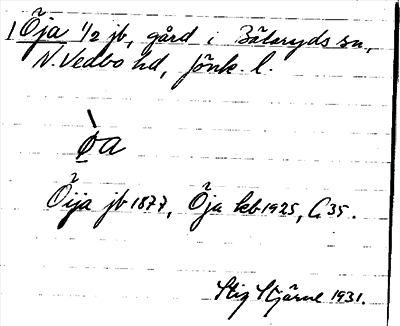 1 Öja 1/2 jb, gård i Bälaryds sn,
N. Vedbo hd, Jönk. l.
ø̀a
Öija jb 1877, Öja kb 1925, C. 35.
Stig Stjärne 1931.